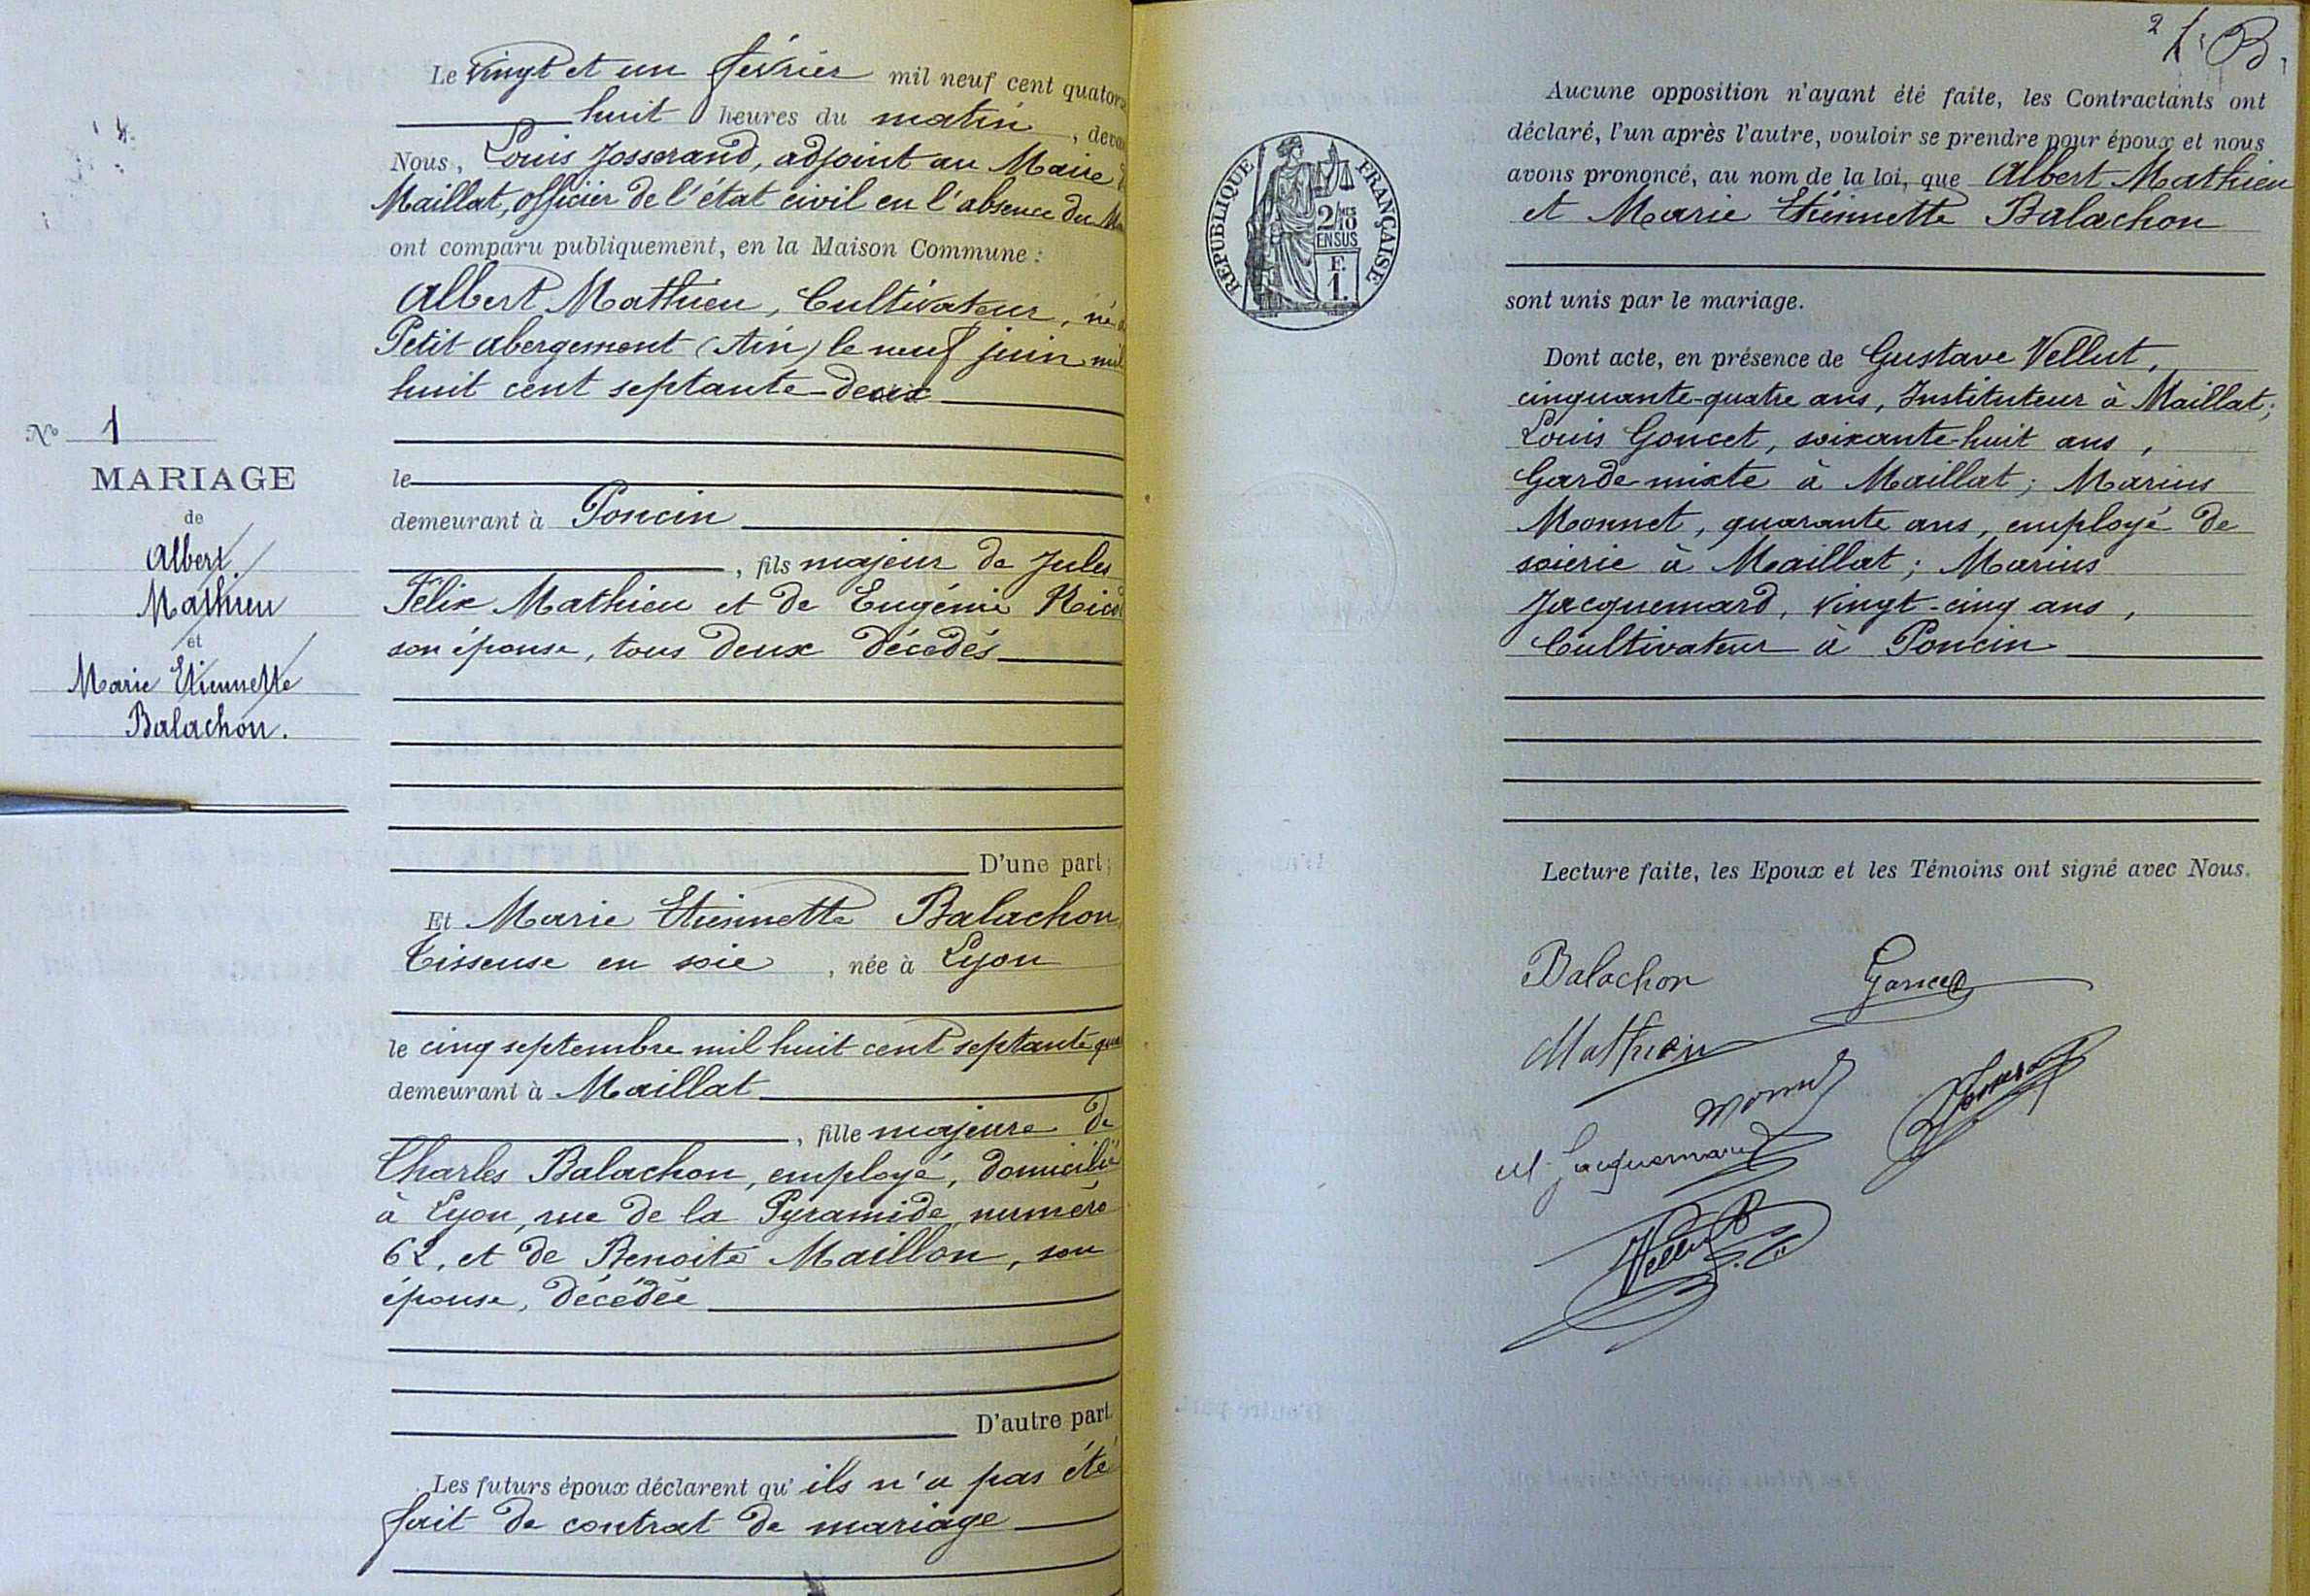 Le vingt et un février mil neuf cent quator
huit heures du matin, deva
Nous, Louis Josserand, adjoint au Maire
Maillat, officier de l'état civil en l'absence du M
ont comparu publiquement, en la Maison Commune :
Albert Mathieu, Cultivateur, né
Petit abergement (Ain) le neuf juin mil
huit cent septante-deux
le
demeurant à Poncin
, fils majeur de Jules
Félix Mathieu et de Eugénie Nicod
son épouse, tous deux décédés
D'une part;
Et Marie Etiennette Balachon
Tisseuse en soie, née à Lyon
le cinq septembre mil huit cent septante qua
demeurant à Maillat
, fille majeure de
Charles Balachon, employé, domicilié
à Lyon, rue de la Pyramide, numéro
62, et de Benoite Maillon, son
épouse, décédée
D'autre part.
Les futurs époux déclarent qu'ils n'a pas été
fait de contrat de mariage
N° 1
MARIAGE
de
Albert
Mathieu
et
Marie Etiennette
Balachon.
2
B.
RÉPUBLIQUE FRANÇAISE
2/10 MES
EN SUS
F.
1.
Aucune opposition n'ayant été faite, les Contractants ont
déclaré, l'un après l'autre, vouloir se prendre pour époux et nous
avons prononcé, au nom de la loi, que Albert Mathieu
et Marie Etiennette Balachon
sont unis par le mariage.
Dont acte, en présence de Gustave Vellut,
cinquante-quatre ans, Instituteur à Maillat;
Louis Goncet, soixante-huit ans,
Garde-mixte à Maillat; Marius
Monnet, quarante ans, employé de
soierie à Maillat; Marius
Jacquemard, vingt-cinq ans,
Cultivateur à Poncin
Lecture faite, les Epoux et les Témoins ont signé avec Nous.
Balachon
Goncet
Mathieu
Monnet
M. Jacquemard
Vellut